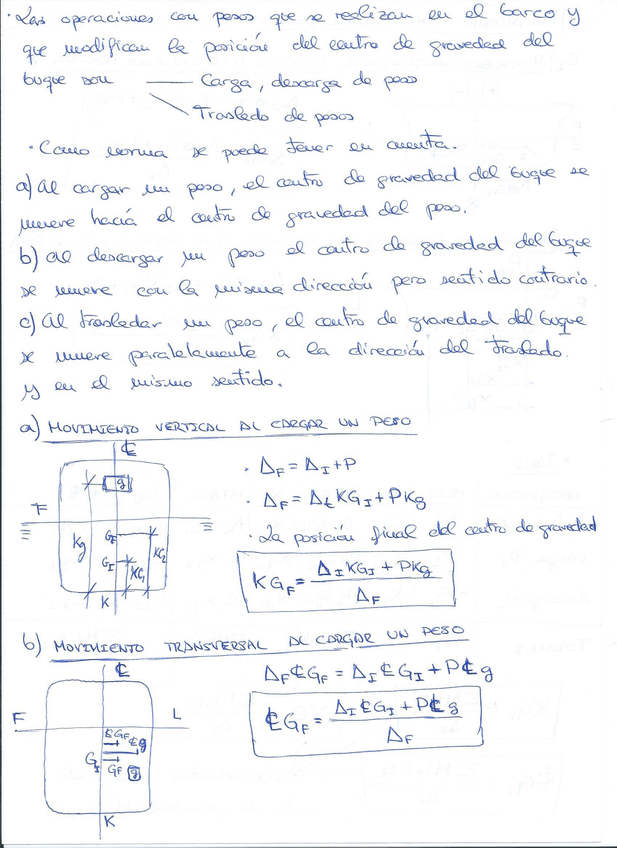 · Las operaciones con pesos que se realizan en el barco y
que modifican la posición del centro de gravedad del
buque son — Carga, descarga de peso
Traslado de pesos
· Como norma se puede tener en cuenta.
a) Al cargar un peso, el centro de gravedad del buque se
mueve hacia el centro de gravedad del peso.
b) Al descargar un peso el centro de gravedad del buque
se mueve con la misma dirección pero sentido contrario.
c) Al trasladar un peso, el centro de gravedad del buque
se mueve paralelamente a la dirección del traslado.
y en el mismo sentido.
a) MOVIMIENTO VERTICAL AL CARGAR UN PESO
℄
g
F
Kg
GF
GI
KG1
KG2
K
· ΔF = ΔI + P
· ΔF = ΔI KGI + PKg
· La posición final del centro de gravedad
KGF = ΔI KGI + PKg
ΔF
b) MOVIMIENTO TRANSVERSAL AL CARGAR UN PESO
℄
F
L
℄GF ℄g
GI
GF g
K
ΔF ℄GF = ΔI ℄GI + P℄g
℄GF = ΔI ℄GI + P℄g
ΔF